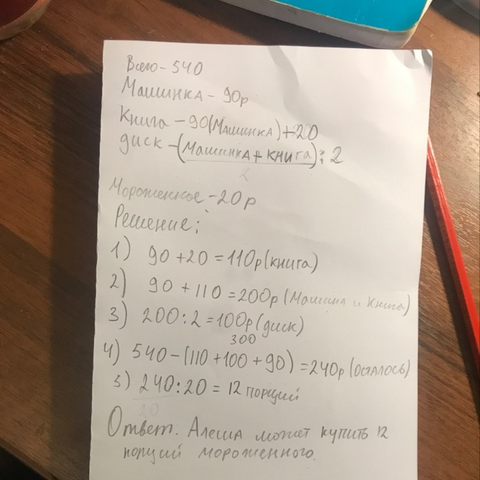 Всего - 540
Машинка - 90р
Книга - 90(Машинка)+20
диск - (Машинка + книга) : 2
Мороженное - 20р
Решение:
1) 90 + 20 = 110р(книга)
2) 90 + 110 = 200р(Машина и Книга)
3) 200 : 2 = 100р(диск)
300
4) 540 - (110 + 100 + 90) = 240р(осталось)
5) 240 : 20 = 12 порций
Ответ. Алеша может купить 12
порций мороженного.